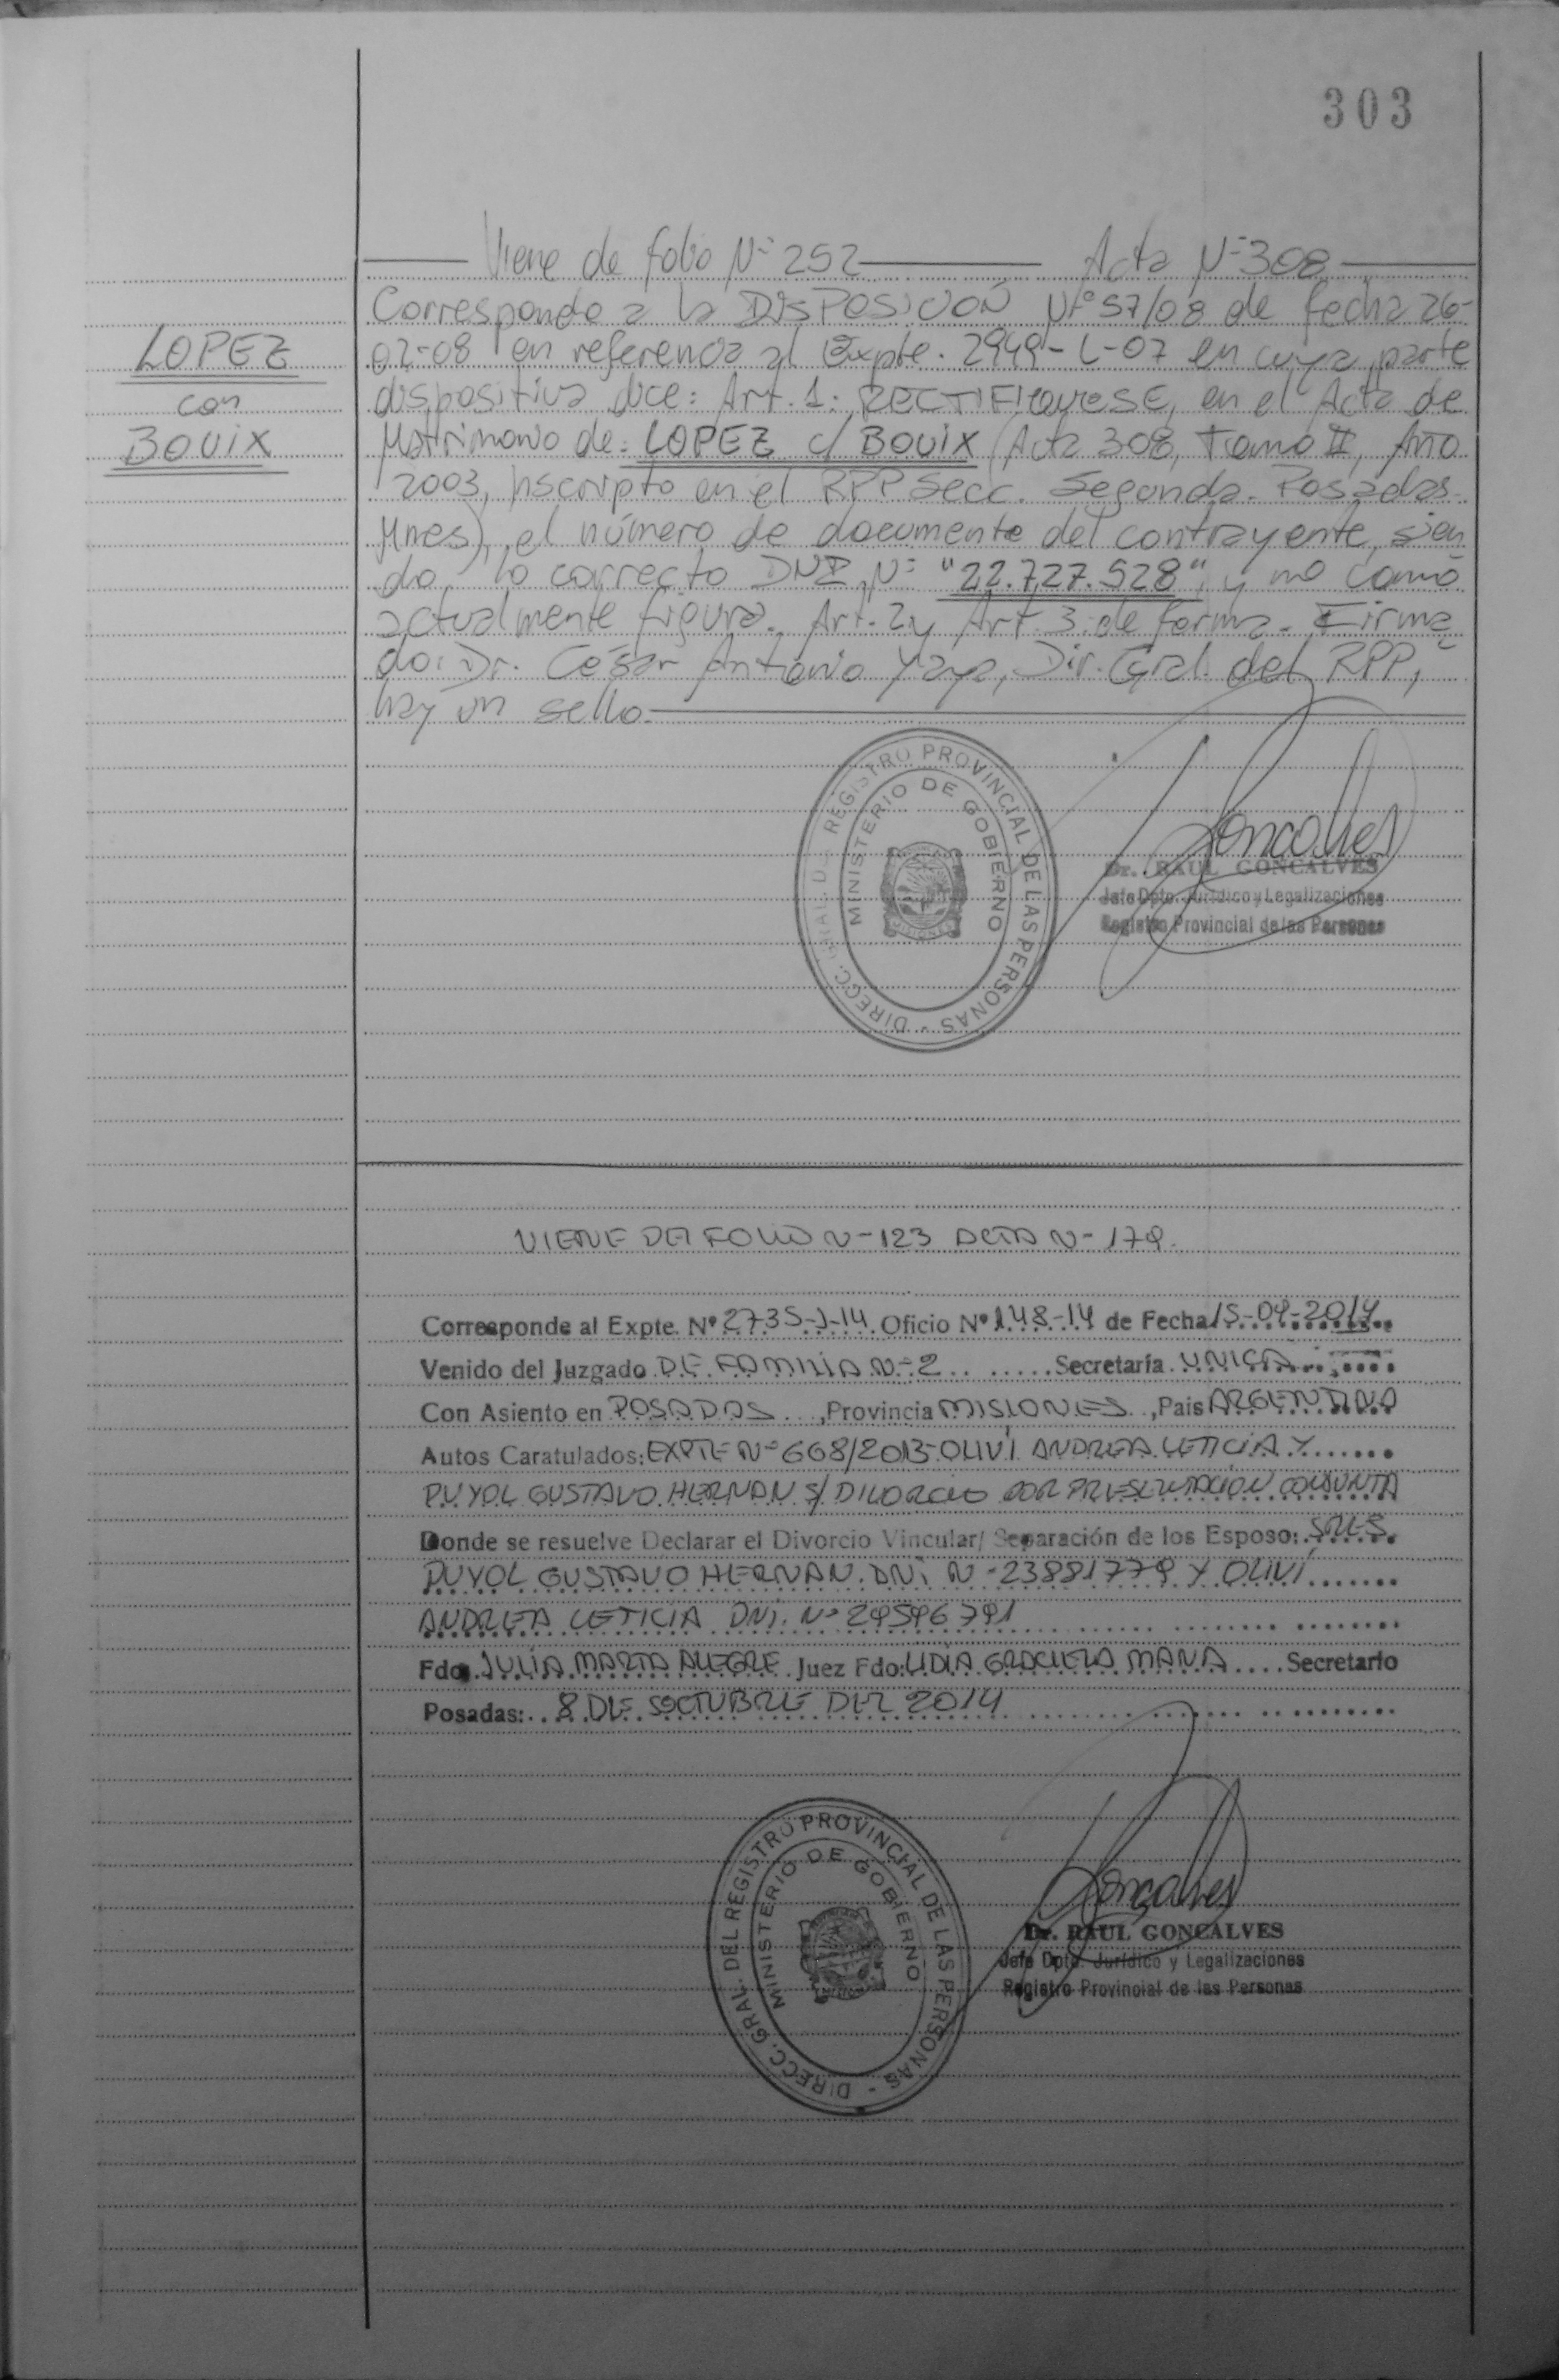 303
Viene de folio Nº 252 Acta Nº 308
LOPEZ
con
BOUIX
Corresponde a la DISPOSICION Nº 57/08 de fecha 26-
02-08 en referencia al Expte. 2949-L-07 en cuya parte
dispositiva dice: Art. 1: RECTIFIquESE, en el Acta de
Matrimonio de: LOPEZ c/ BOUIX (Acta 308, Tomo II, Año
2003, Inscripto en el RPP Secc. Segunda. Posadas-
Mnes), el número de documento del contrayente, sien
do, lo correcto DNI Nº "22.727.528", y no como
actualmente figura. Art. 2 y Art. 3. de forma. Firma
do: Dr. César Antonio Yaya, Dir. Gral. del RPP,
hay un sello.
DIRECC. GRAL. DEL REGISTRO PROVINCIAL DE LAS PERSONAS -
MINISTERIO DE GOBIERNO
Goncalves
Dr. RAUL GONCALVES
Jefe Dpto. Jurídico y Legalizaciones
Registro Provincial de las Personas
VIENE DEL FOLIO Nº 123 ACTA Nº 179.
Corresponde al Expte. Nº 2735-J-14 Oficio Nº 148-14 de Fecha 15-09-2014
Venido del Juzgado DE FAMILIA Nº 2 Secretaría UNICA
Con Asiento en POSADAS, Provincia MISIONES, País ARGENTINA
Autos Caratulados: EXPTE Nº 668/2013-OLIVI ANDREA LETICIA Y
PUYOL GUSTAVO HERNAN S/ DIVORCIO POR PRESENTACION CONJUNTA
Donde se resuelve Declarar el Divorcio Vincular/ Separación de los Esposo: SRES.
PUYOL GUSTAVO HERNAN. DNI Nº 23881779 Y OLIVI
ANDREA LETICIA DNI. Nº 29596791
Fdo. JULIA MARTA ALEGRE Juez Fdo: LIDIA GRACIELA MANA Secretario
Posadas: 8 DE OCTUBRE DEL 2014
DIRECC. GRAL. DEL REGISTRO PROVINCIAL DE LAS PERSONAS -
MINISTERIO DE GOBIERNO
Goncalves
Dr. RAUL GONCALVES
Jefe Dpto. Jurídico y Legalizaciones
Registro Provincial de las Personas